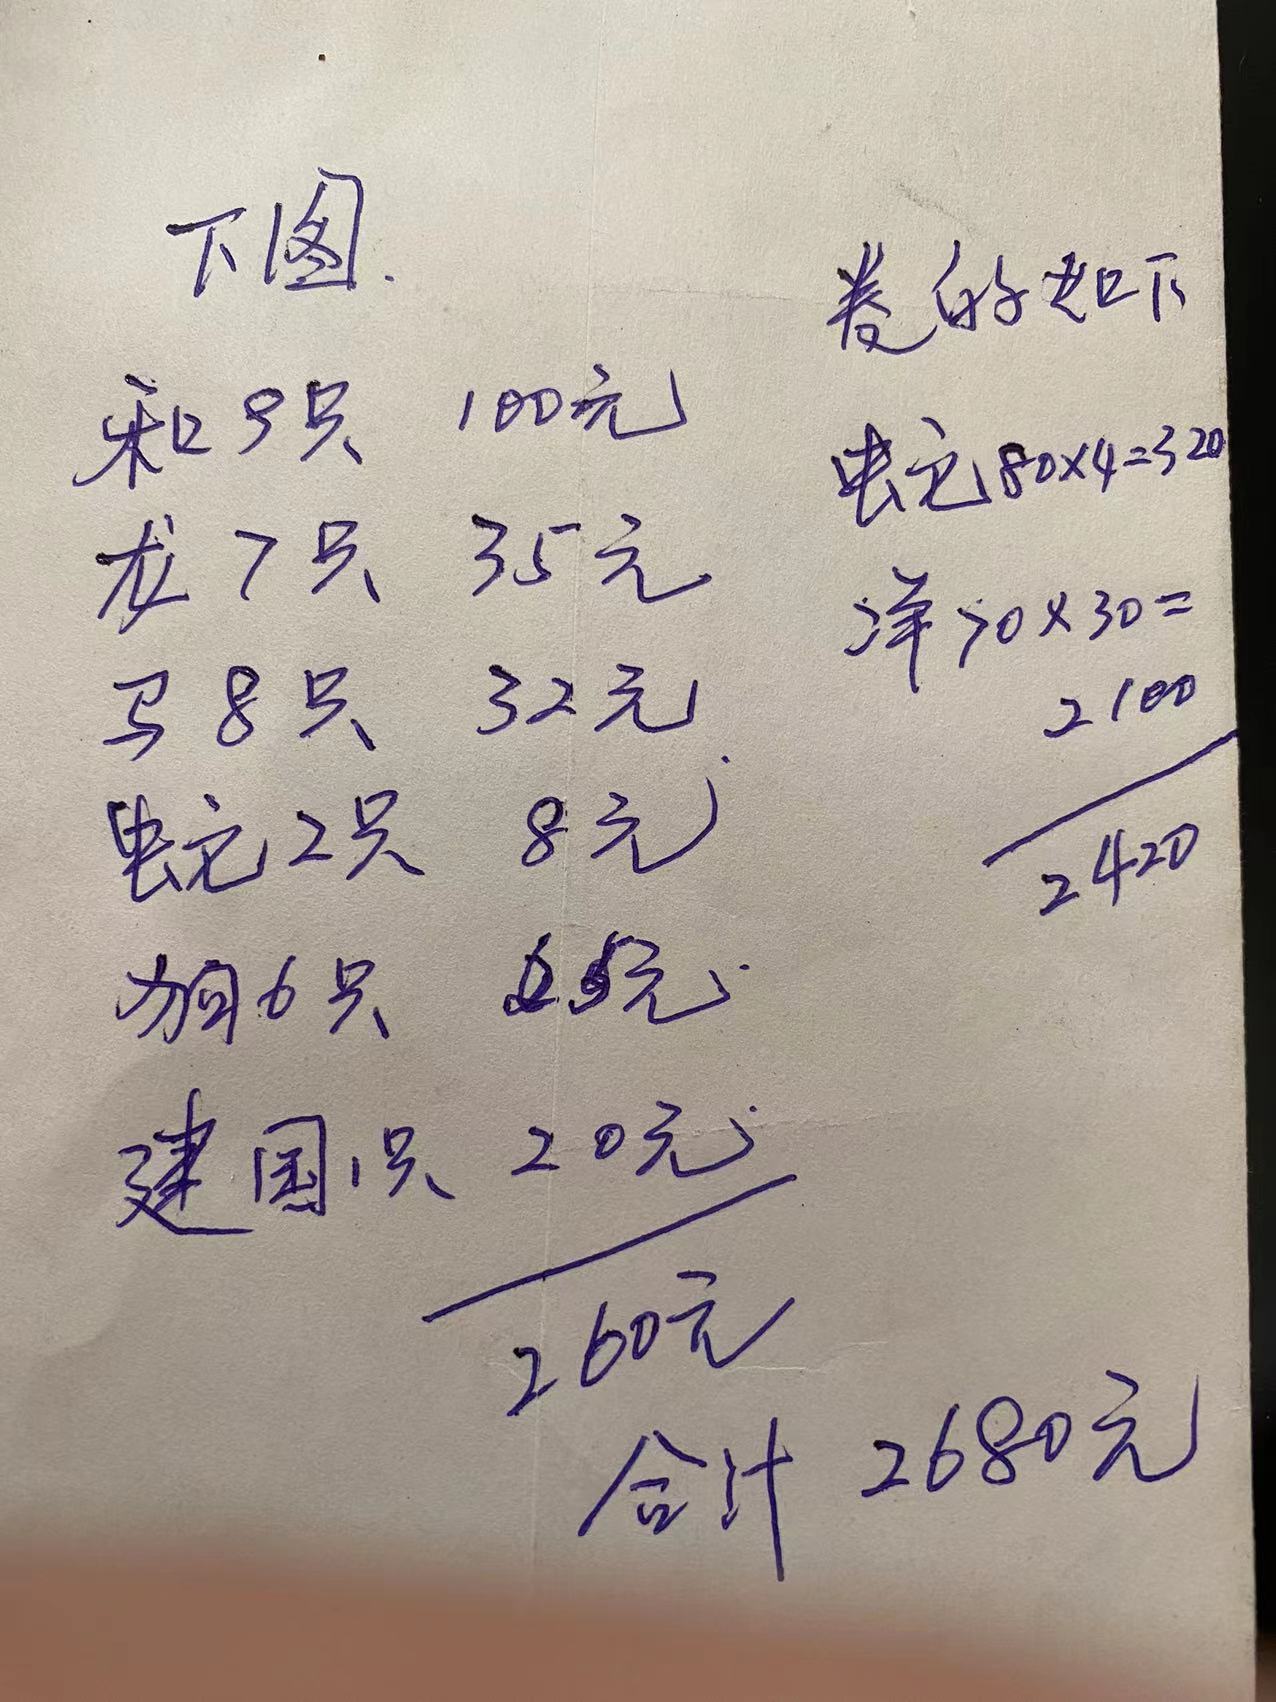 下图.
和9只 100元
龙7只 35元
马8只 32元
蛇2只 8元
狗6只 65元
建国1只 20元
260元
卷的如下
蛇80×4=320
洋70×30=
2100
2420
合计 2680元